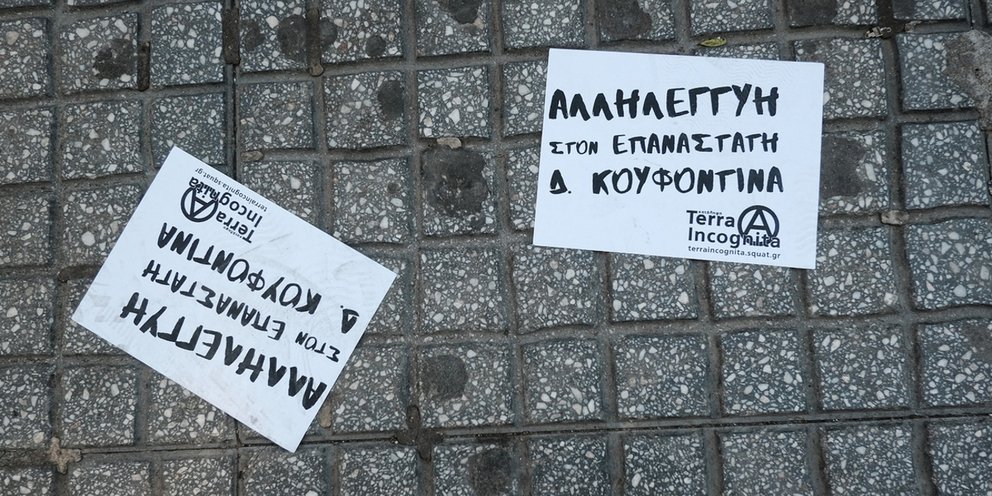 ΑΛΛΗΛΕΓΓΥΗ
ΣΤΟΝ ΕΠΑΝΑΣΤΑΤΗ
Δ. ΚΟΥΦΟΝΤΙΝΑ
κατάληψη
Terra
Incognita
terraincognita.squat.gr
ΑΛΛΗΛΕΓΓΥΗ
ΣΤΟΝ ΕΠΑΝΑΣΤΑΤΗ
Δ. ΚΟΥΦΟΝΤΙΝΑ
κατάληψη
Terra
Incognita
terraincognita.squat.gr